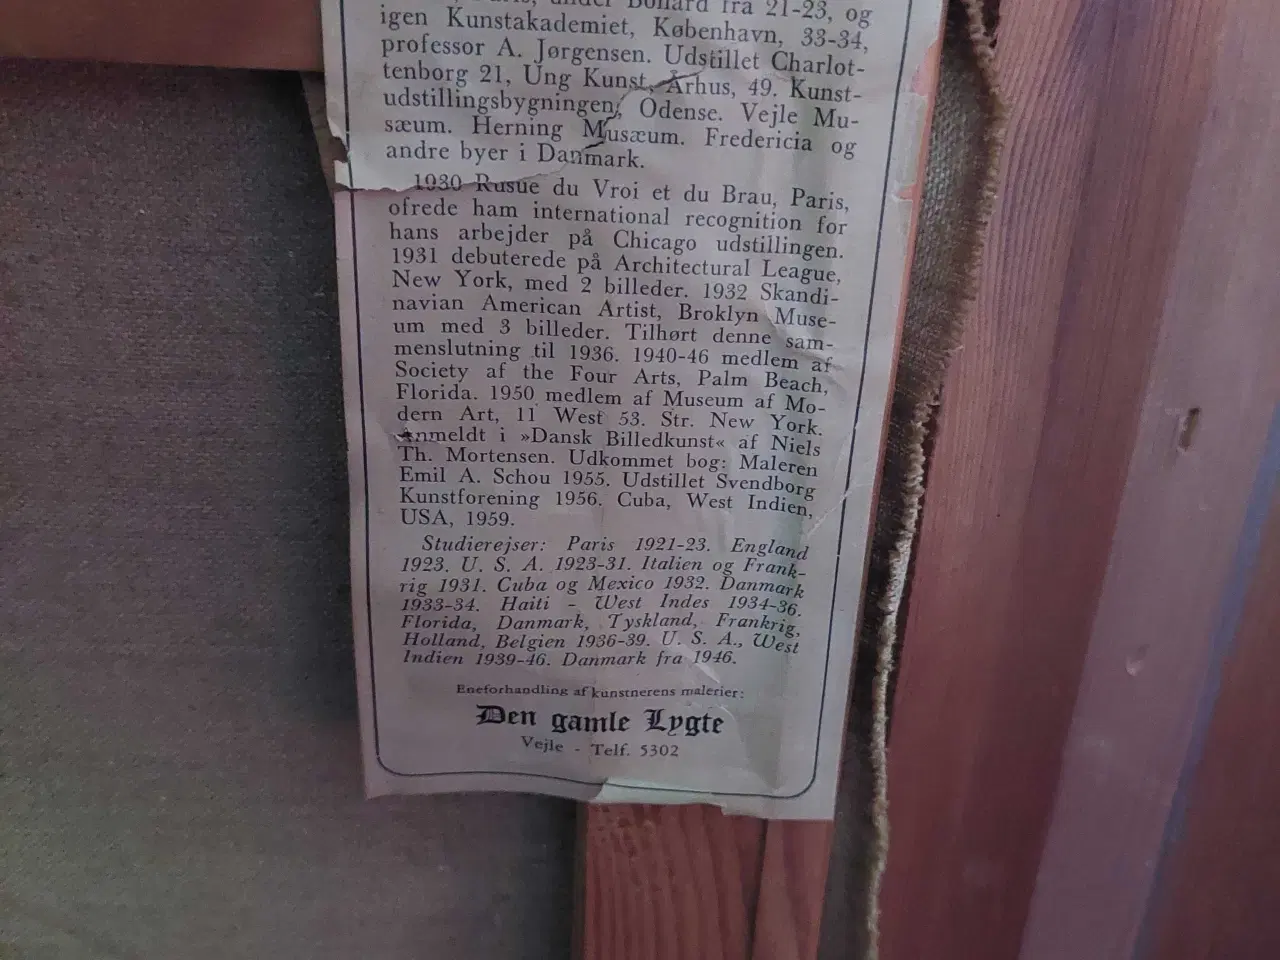 fra 21-23, og
igen Kunstakademiet, København, 33-34,
professor A. Jørgensen. Udstillet Charlot-
tenborg 21, Ung Kunst, Århus, 49. Kunst-
udstillingsbygningen, Odense. Vejle Mu-
sæum. Herning Musæum. Fredericia og
andre byer i Danmark.
1930 Rusue du Vroi et du Brau, Paris,
ofrede ham international recognition for
hans arbejder på Chicago udstillingen.
1931 debuterede på Architectural League,
New York, med 2 billeder. 1932 Skandi-
navian American Artist, Broklyn Muse-
um med 3 billeder. Tilhørt denne sam-
menslutning til 1936. 1940-46 medlem af
Society af the Four Arts, Palm Beach,
Florida. 1950 medlem af Museum af Mo-
dern Art, 11 West 53. Str. New York.
Anmeldt i »Dansk Billedkunst« af Niels
Th. Mortensen. Udkommet bog: Maleren
Emil A. Schou 1955. Udstillet Svendborg
Kunstforening 1956. Cuba, West Indien,
USA, 1959.
Studierejser: Paris 1921-23. England
1923. U. S. A. 1923-31. Italien og Frank-
rig 1931. Cuba og Mexico 1932. Danmark
1933-34. Haiti - West Indes 1934-36.
Florida, Danmark, Tyskland, Frankrig,
Holland, Belgien 1936-39. U. S. A., West
Indien 1939-46. Danmark fra 1946.
Eneforhandling af kunstnerens malerier:
Den gamle Lygte
Vejle - Telf. 5302